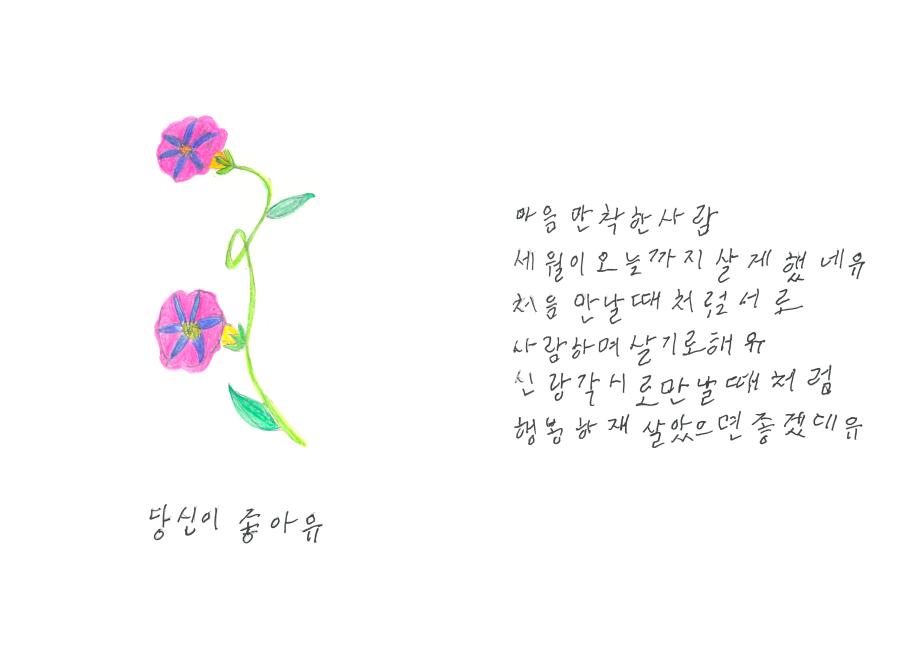 당신이 좋아유
마음만 착한 사람
세월이 오늘까지 살게 했네유
처음 만날때처럼 서로
사랑하며 살기로해유
신랑각시로 만날때처럼
행봉하재 살았으면 좋겠데유